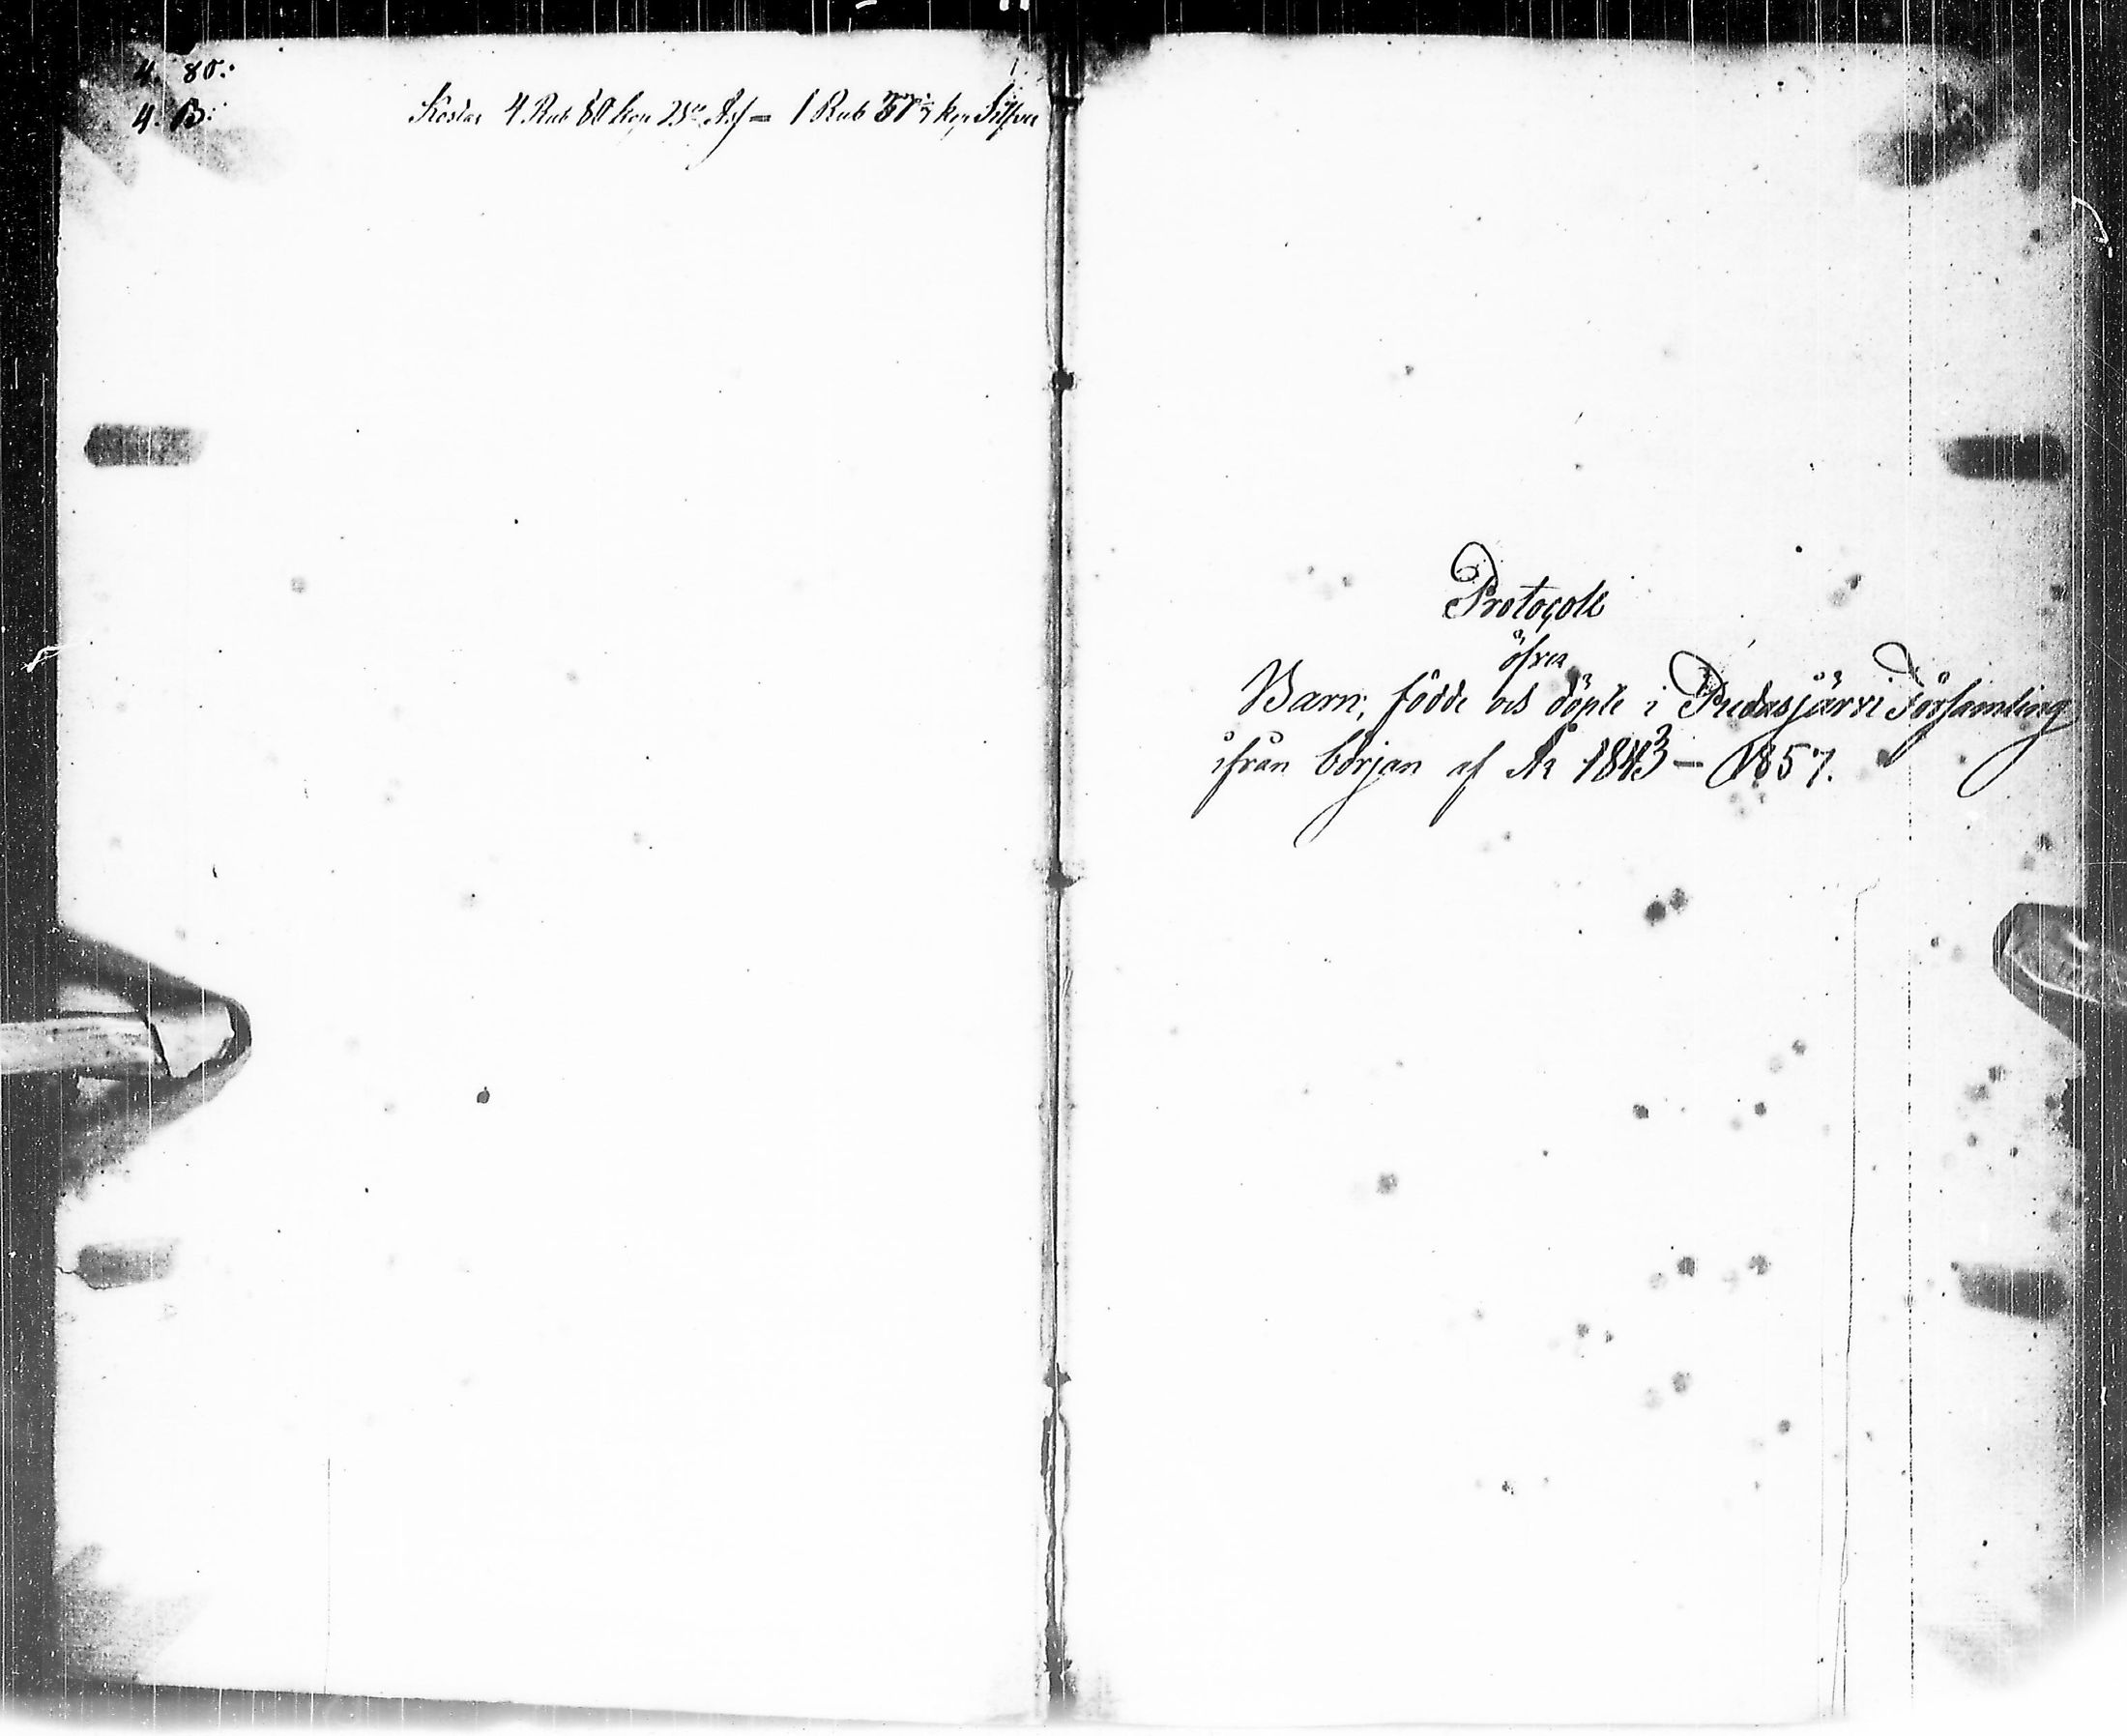 4. 80.
4. B.
Kostar 4 Rub 80 kop B:co Ass = 1 Rub 37 1/7 kop Silfver
Protocoll
öfver
Barn, födde och döpte i Pudasjärvi Församling
ifrån början af År 1843 – 1857.